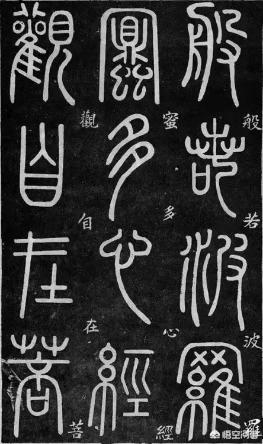 般若波羅
般若波羅
蜜多心經
蜜多心經
觀自在菩
觀自在菩
悟空问答